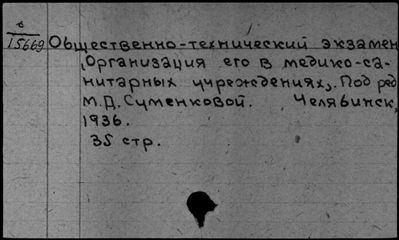 в
15669
Общественно-технический экзамен
(Организация его в медико-са-
нитарных учреждениях). Под ред
М.Д. Суменковой. Челябинск,
1936.
35 стр.